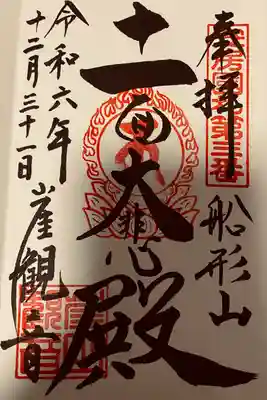 奉拝
船形山
十一面大悲殿
令和六年
十二月三十一日
崖観音